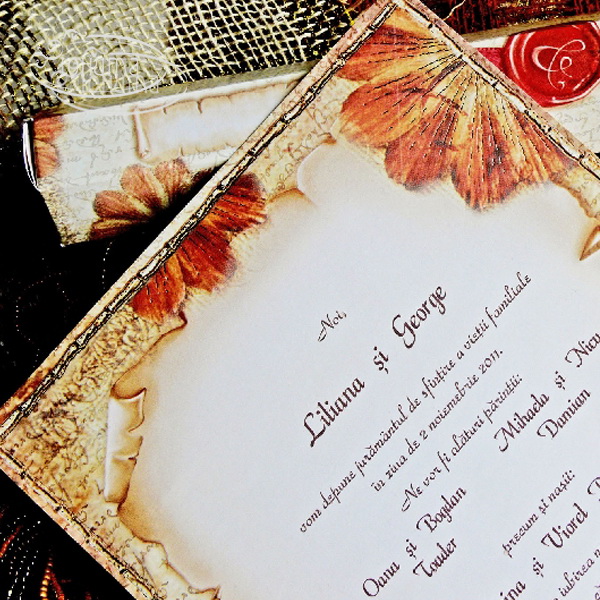 Noi,
Liliana și George
vom depune jurământul de sfințire a vieții familiale
în ziua de 2 noiembrie 2011.
Ne vor fi alături părinții:
Oana și Bogdan
Tudor
Mihaela și
Damian
precum și nașii:
și Viorel
iubirea